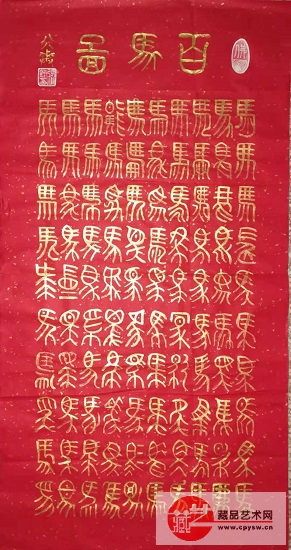 百馬圖
馬馬馬馬馬馬馬馬馬馬
馬馬馬馬馬馬馬馬馬馬
馬馬馬馬馬馬馬馬馬馬
馬馬馬馬馬馬馬馬馬馬
馬馬馬馬馬馬馬馬馬馬
馬馬馬馬馬馬馬馬馬馬
馬馬馬馬馬馬馬馬馬馬
馬馬馬馬馬馬馬馬馬馬
馬馬馬馬馬馬馬馬馬馬
馬馬馬馬馬馬馬馬馬馬
藏品艺术网
www.cpysw.cn